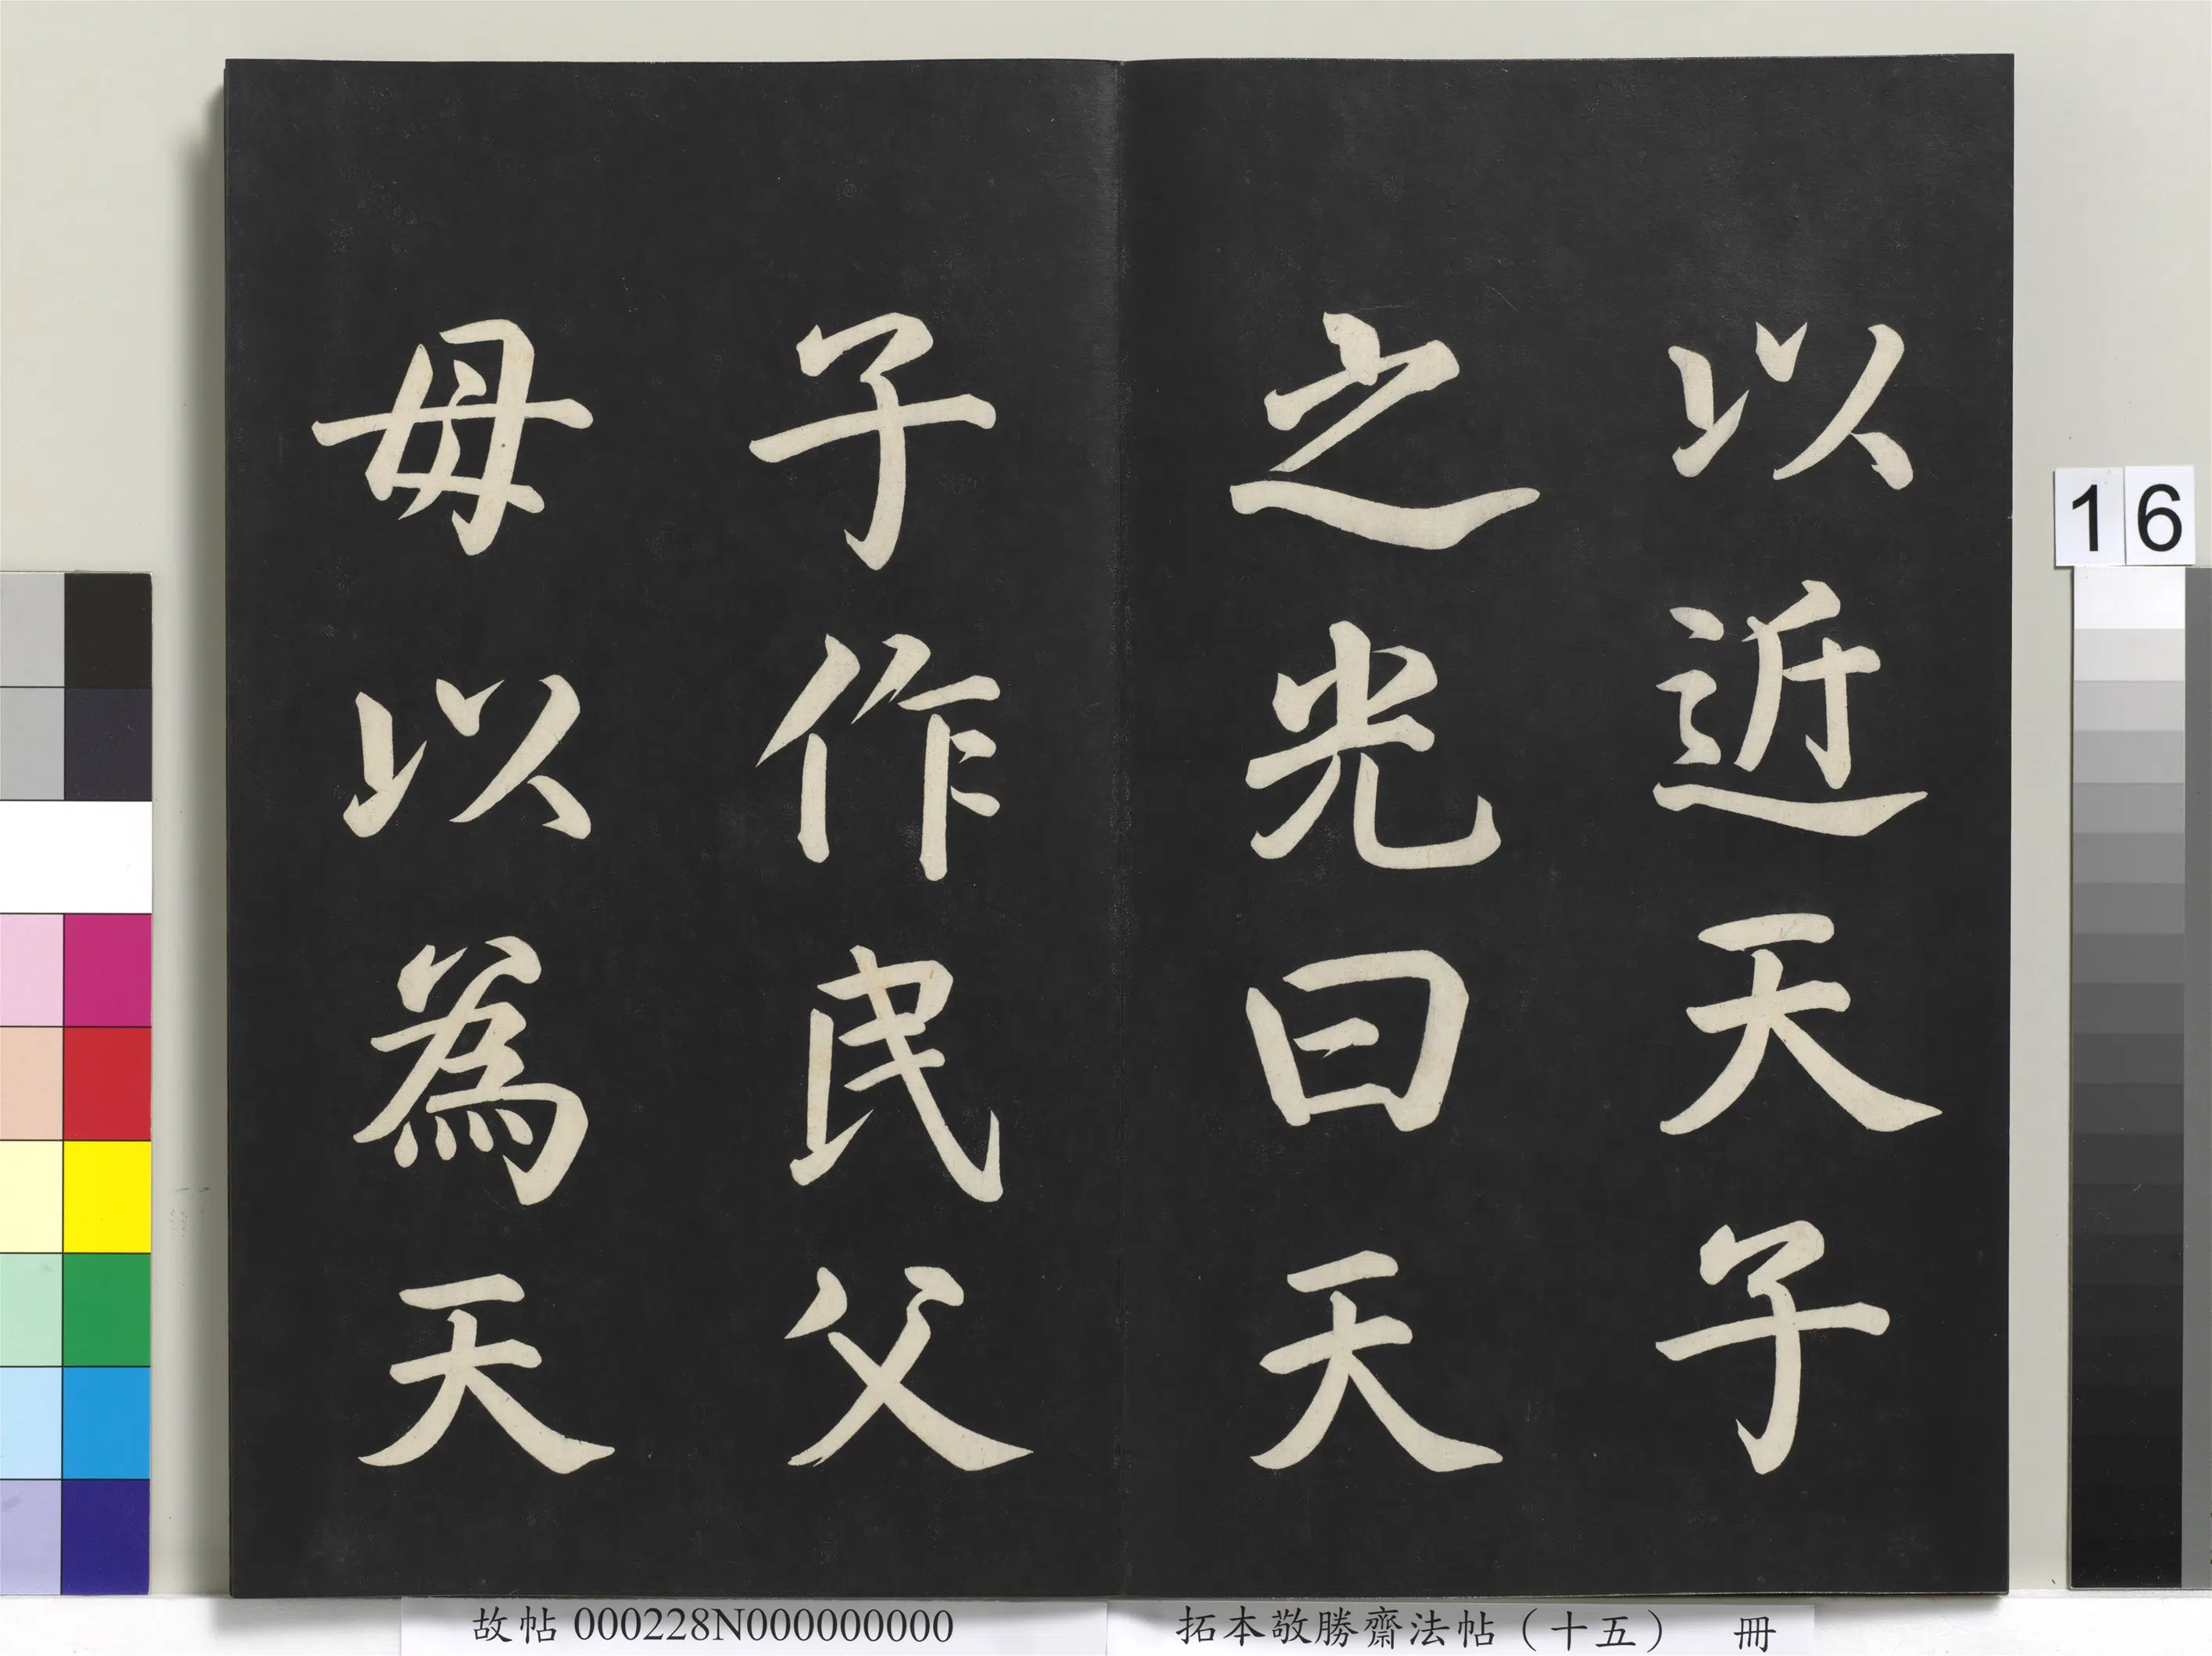 以近天子
之光曰天
子作民父
母以為天
16
故帖 000228N000000000
拓本敬勝齋法帖（十五） 冊